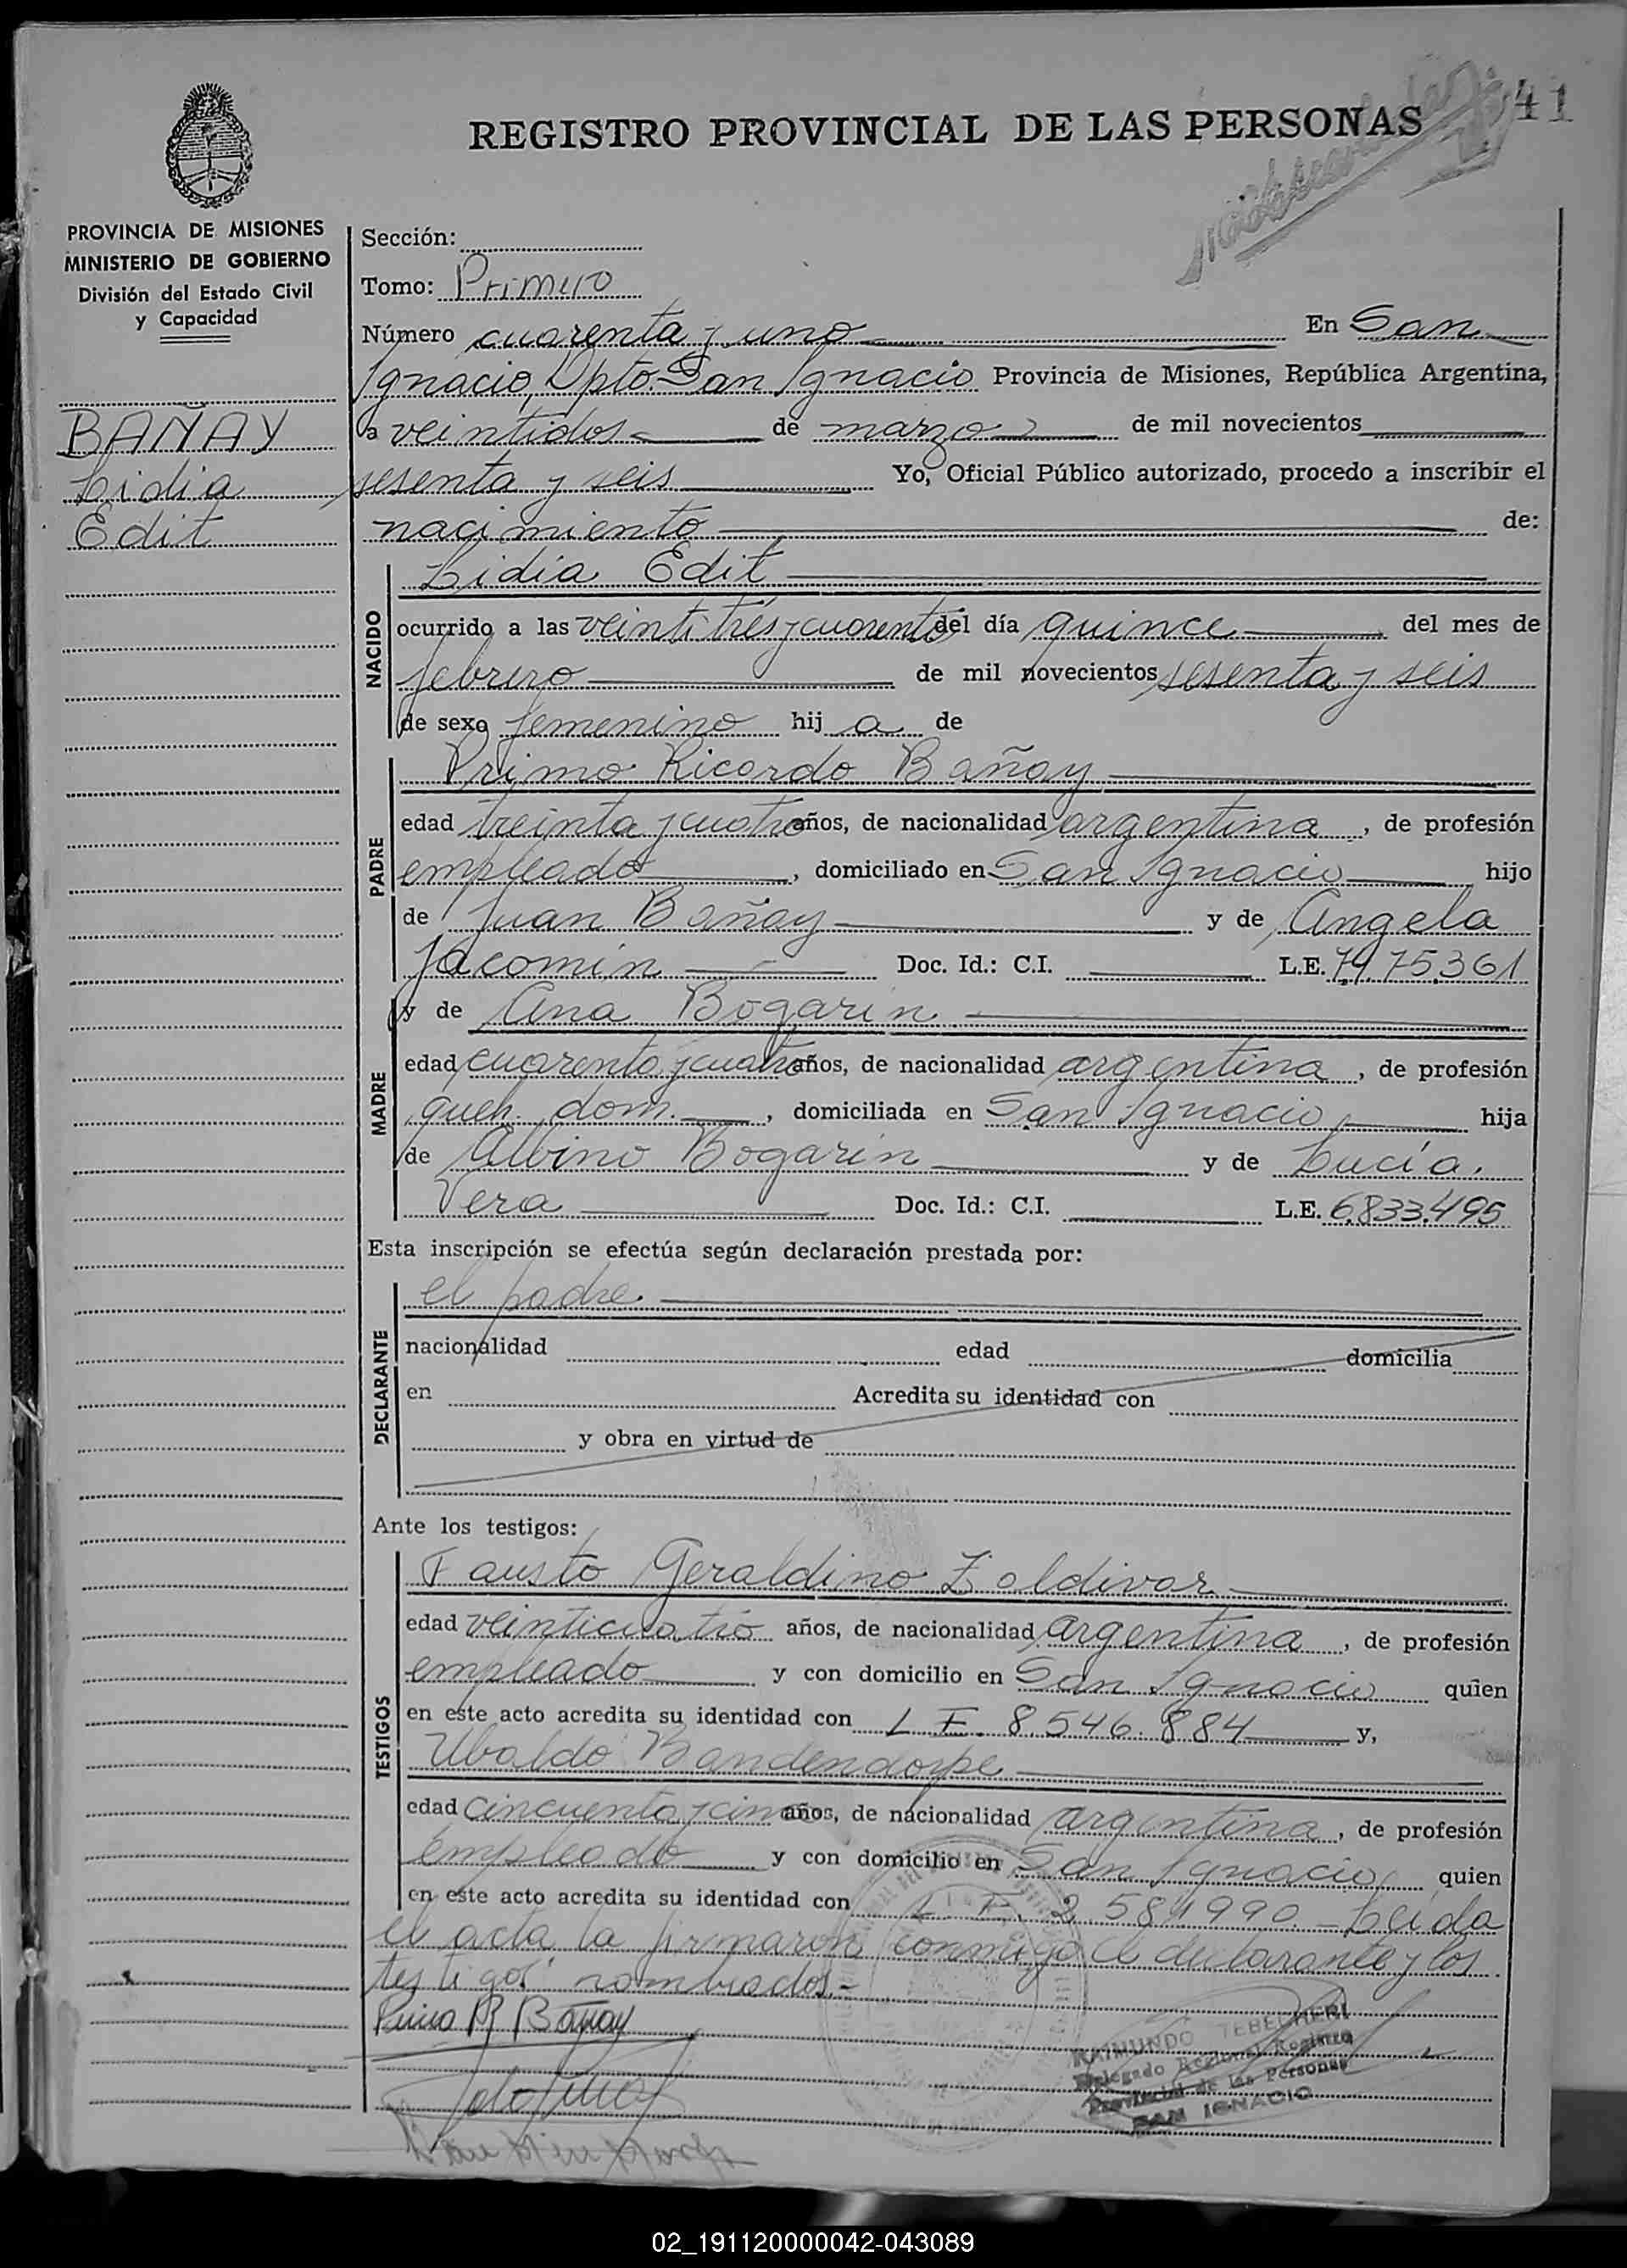 41
REGISTRO PROVINCIAL DE LAS PERSONAS
PROVINCIA DE MISIONES
MINISTERIO DE GOBIERNO
División del Estado Civil
y Capacidad
BAÑAY
Lidia
Edit
Sección:
Tomo: Primero
Número cuarenta y uno En San
Ignacio, Dpto. San Ignacio Provincia de Misiones, República Argentina,
a veintidos de marzo de mil novecientos
sesenta y seis Yo, Oficial Público autorizado, procedo a inscribir el
nacimiento de:
Lidia Edit
NACIDO
ocurrido a las veintitrés y cuarenta del día quince del mes de
febrero de mil novecientos sesenta y seis
de sexo femenino hij a de
Primo Ricardo Bañay
PADRE
edad treinta y cuatro años, de nacionalidad argentina, de profesión
empleado, domiciliado en San Ignacio hijo
de Juan Bañay y de Angela
Jacomin Doc. Id.: C.I. L.E. 7.475.361
y de Ana Bogarin
MADRE
edad cuarenta y cuatro años, de nacionalidad argentina, de profesión
queh. dom., domiciliada en San Ignacio hija
de Albino Bogarin y de Lucía
Vera Doc. Id.: C.I. L.E. 6.833.495
Esta inscripción se efectúa según declaración prestada por:
el padre
DECLARANTE
nacionalidad edad domicilia
en Acredita su identidad con
y obra en virtud de
Ante los testigos:
Fausto Geraldino Zaldivar
TESTIGOS
edad veinticuatro años, de nacionalidad argentina, de profesión
empleado y con domicilio en San Ignacio quien
en este acto acredita su identidad con L E. 8.546.884 y,
Ubaldo Bandendorpe
edad cincuenta y cinco años, de nacionalidad argentina, de profesión
empleado y con domicilio en San Ignacio quien
en este acto acredita su identidad con L. E. 2.584.990. - Leida
el acta la firmaron conmigo el declarante y los
testigos nombrados.-
Primo R Bañay
RAIMUNDO TEBECHERI
Delegado Regional Registro
Provincial de las Personas
SAN IGNACIO
02_191120000042-043089